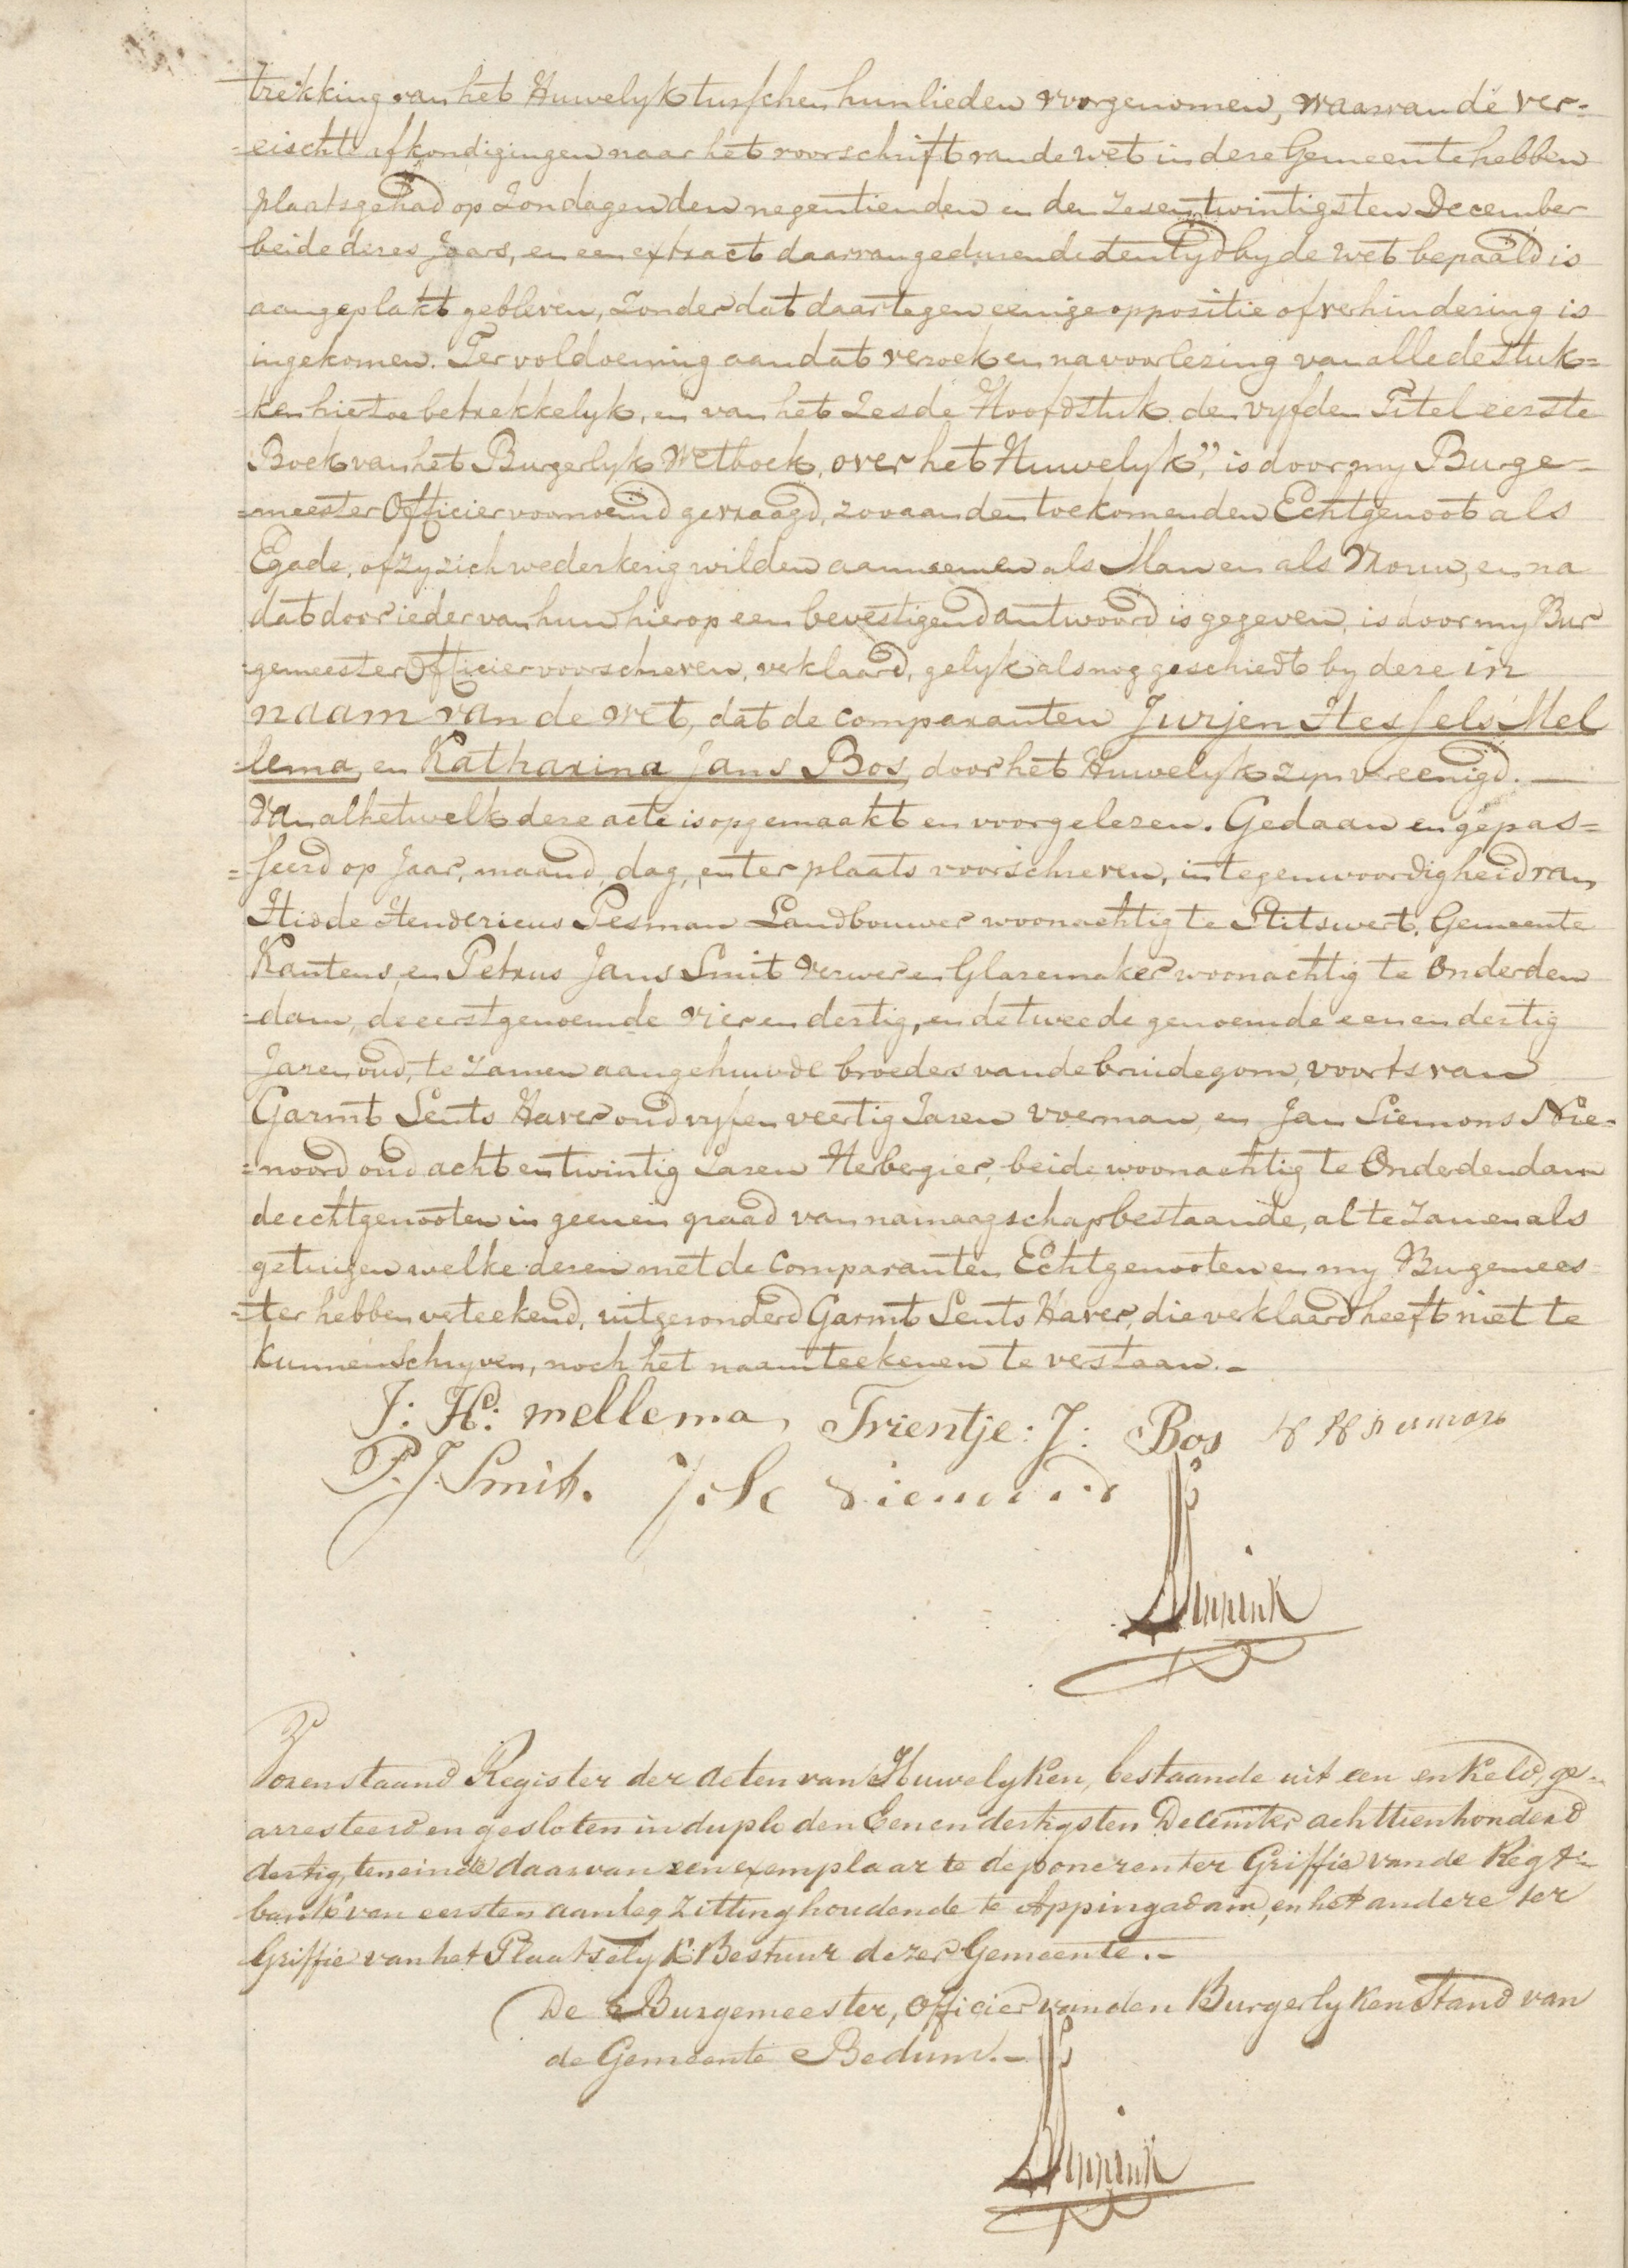 trekking van het Huwelyk tusschen hunlieden voorgenomen, waarvan de ver=
=eischte afkondigingen naar het voorschrift van de wet in deze Gemeente hebben
plaatsgehad op Zondagen den negentienden en den zesentwintigsten December
beide dezes Jaars, en een extract daarvan gedurende den tyd by de wet bepaald is
aangeplakt gebleven, zonder dat daartegen eenige oppositie of verhindering is
ingekomen. Ter voldoening aan dat verzoek en na voorlezing van alle de stuk=
=ken hiertoe betrekkelyk, en van het Zesde Hoofdstuk den vyfden Titel eerste
Boek van het Burgerlyk Wetboek, over het Huwelyk", is door my Burge=
=meester Officier voornoemd gevraagd, zoo aan den toekomenden Echtgenoot als
Egade, of zy zich wederkerig wilden aannemen als Man en als Vrouw, en na
dat door ieder van hun hierop een bevestigend antwoord is gegeven, is door my Bur
=gemeester Officier voorschreven, verklaard, gelyk alsnog geschiedt by deze in
naam van de wet, dat de comparanten Jurjen Hessels Mel
=lema, en Katharina Jans Bos, door het Huwelyk zyn vereenigd.—
Van al hetwelk deze acte is opgemaakt en voorgelezen. Gedaan en gepas=
=seerd op Jaar, maand, dag, en ter plaats voorschreven, in tegenwoordigheid van
Hidde Hendericus Pesman Landbouwer woonachtig te Stitswert, Gemeente
Kantens, en Petrus Jans Smit Verwer en Glazemaker woonachtig te Onderden
=dam, de eerstgenoemde vier en dertig, en de tweede genoemde een en dertig
Jaren oud, te zamen aangehuwde broeders van de bruidegom, voorts van
Garmt Lents Haver oud vyf en veertig Jaren voerman, en Jan Siemons Nie=
=noord oud acht en twintig Jaren Herbergier, beide woonachtig te Onderdendam
de echtgenooten in geenen graad van namaagschap bestaande, al te zamen als
getuigen welke dezen met de Comparanten Echtgenooten en my Burgemees=
=ter hebben verteekend, uitgezonderd Garmt Lents Haver, die verklaard heeft niet te
kunnen Schryven, noch het naamteekenen te verstaan.—
J: H: mellema, Trientje: J: Bos H H Pesman
P. J. Smit. J: S:
Vorenstaand Register der Acten van Huwelyken, bestaande uit een enkeld, ge=
arresteerd en gesloten in duplo den Eenendertigsten December achttienhonderd
dertig, teneinde daarvan een exemplaar te deponeren ter Griffie van de Regt=
bank van eersten aanleg Zitting houdende te Appingadam, en het andere ter
Griffie van het Plaatselyk Bestuur dezer Gemeente.—
De Burgemeester, Officier van den Burgerlyken Stand van
de Gemeente Bedum.—